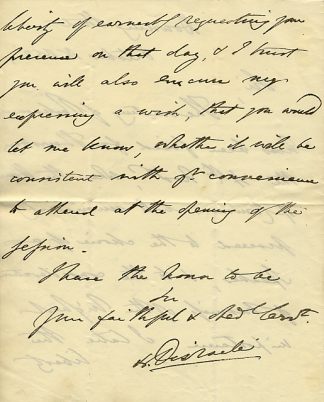 liberty of earnestly requesting your
presence on that day, & I trust
you will also excuse my
expressing a wish, that you would
let me know, whether it will be
consistent with yr convenience
to attend at the opening of the
session.
I have the honor to be
Sir
Your faithful & obedt Servt
B. Disraeli